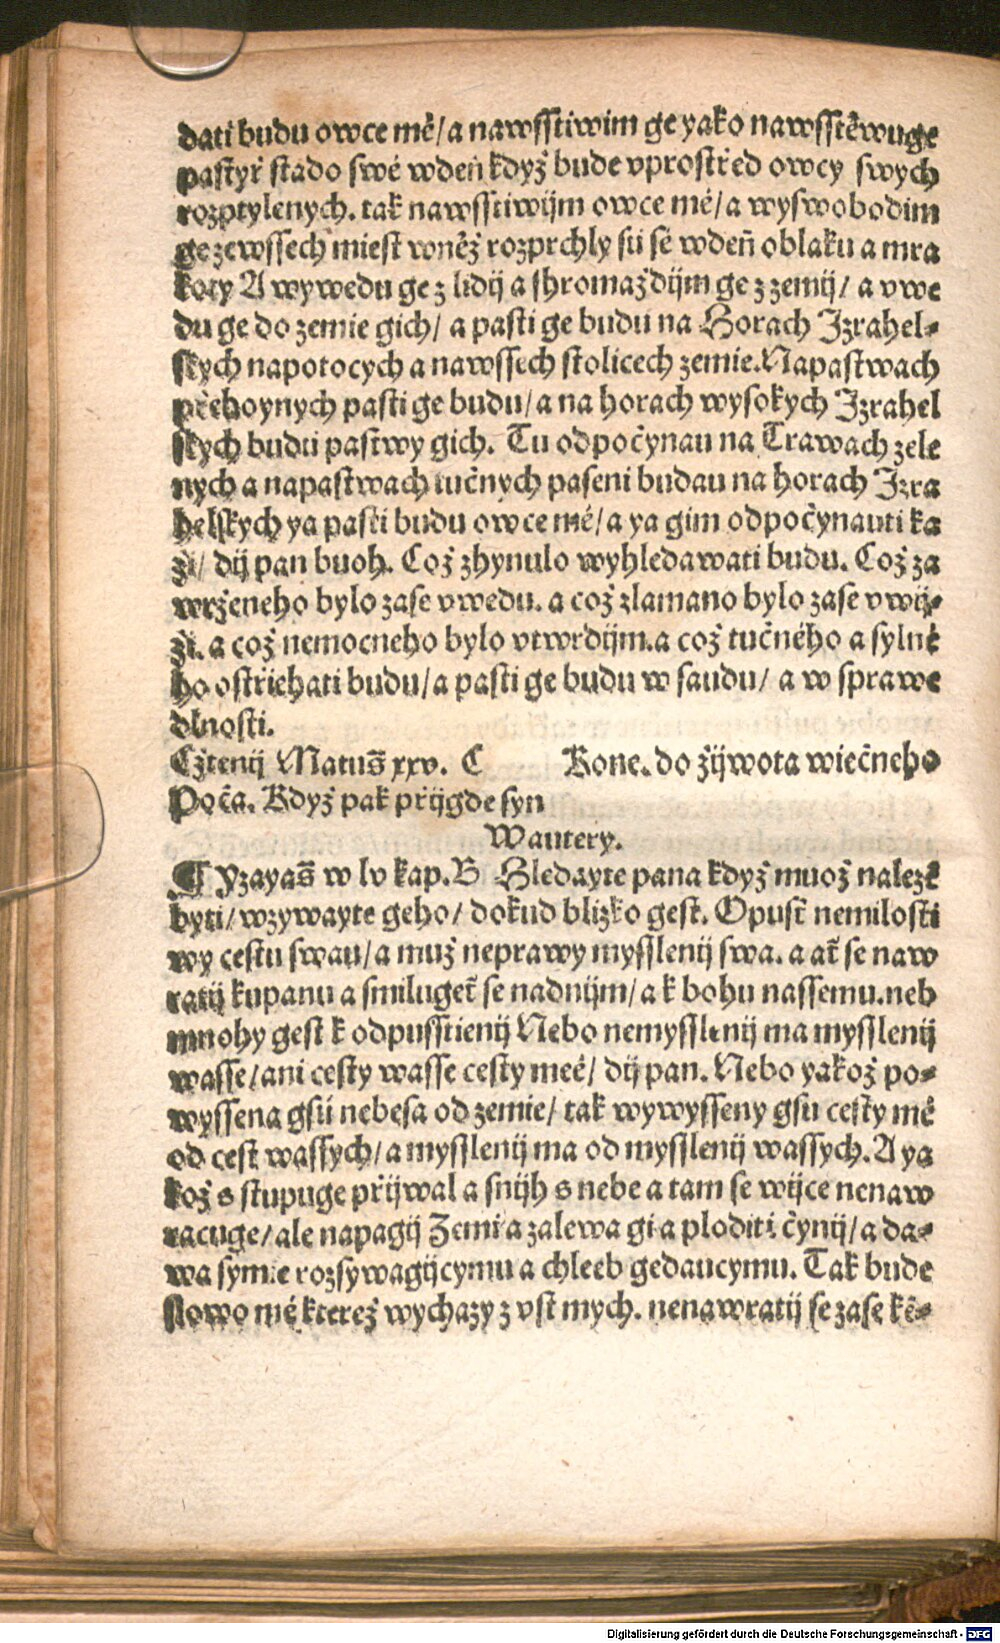 dati budu owce mé/ a nawsstiwim ge yako nawsstěwuge
pastyř stado swé wdeň když bude vprostřed owcy swych
rozptylenych. tak nawsstiwijm owce mé/ a wyswobodim
ge zewssech miest wněž rozprchly sú se wdeň oblaku a mra
koty A wywedu ge z lidij a shromaždijm ge z zemij/ a vwe
du ge do zemie gich/ a pasti ge budu na Horach Izrahel-
skych napotocych a nawssech stolicech zemie. Napastwach
přehoynych pasti ge budu/ a na horach wysokych Izrahel
skych budú pastwy gich. Tu odpočynau na Trawach zele
nych a napastwach tučnych paseni budau na horach Izra
helskych ya pasti budu owce mé/ a ya gim odpočynauti ka
ži/ dij pan buoh. Což zhynulo wyhledawati budu. Což za
wrženeho bylo zase vwedu. a což zlamano bylo zase vwij-
ži. a což nemocneho bylo vtwrdijm. a což tučného a sylné
ho ostřiehati budu/ a pasti ge budu w saudu/ a w sprawe
dlnosti.
Cžtenij Matuš xxv. C Kone. do žijwota wiečneho
Poča. Když pak přijgde syn
Wautery.
¶ Yzayaš w lv kap. B Hledayte pana když muož nalezē
byti/ wzywayte geho/ dokud blizko gest. Opusť nemilosti
wy cestu swau/ a muž neprawy mysslenij swa. a ať se naw
ratij kupanu a smilugeť se nadnijm/ a k bohu nassemu. neb
mnohy gest k odpusstienij Nebo nemysslenij ma mysslenij
wasse/ ani cesty wasse cesty meé/ dij pan. Nebo yakož po-
wyssena gsú nebesa od zemie/ tak wywysseny gsu cesty mé
od cest wassych/ a mysslenij ma od mysslenij wassych. A ya
kož s stupuge přijwal a snijh s nebe a tam se wijce nenaw
racuge/ ale napagij Zemi a zalewa gi a ploditi čynij/ a da-
wa symie rozsywagijcymu a chleeb gedaucymu. Tak bude
slowo mé kterež wychazy z vst mych. nenawratij se zase kē-
Digitalisierung gefördert durch die Deutsche Forschungsgemeinschaft - DFG